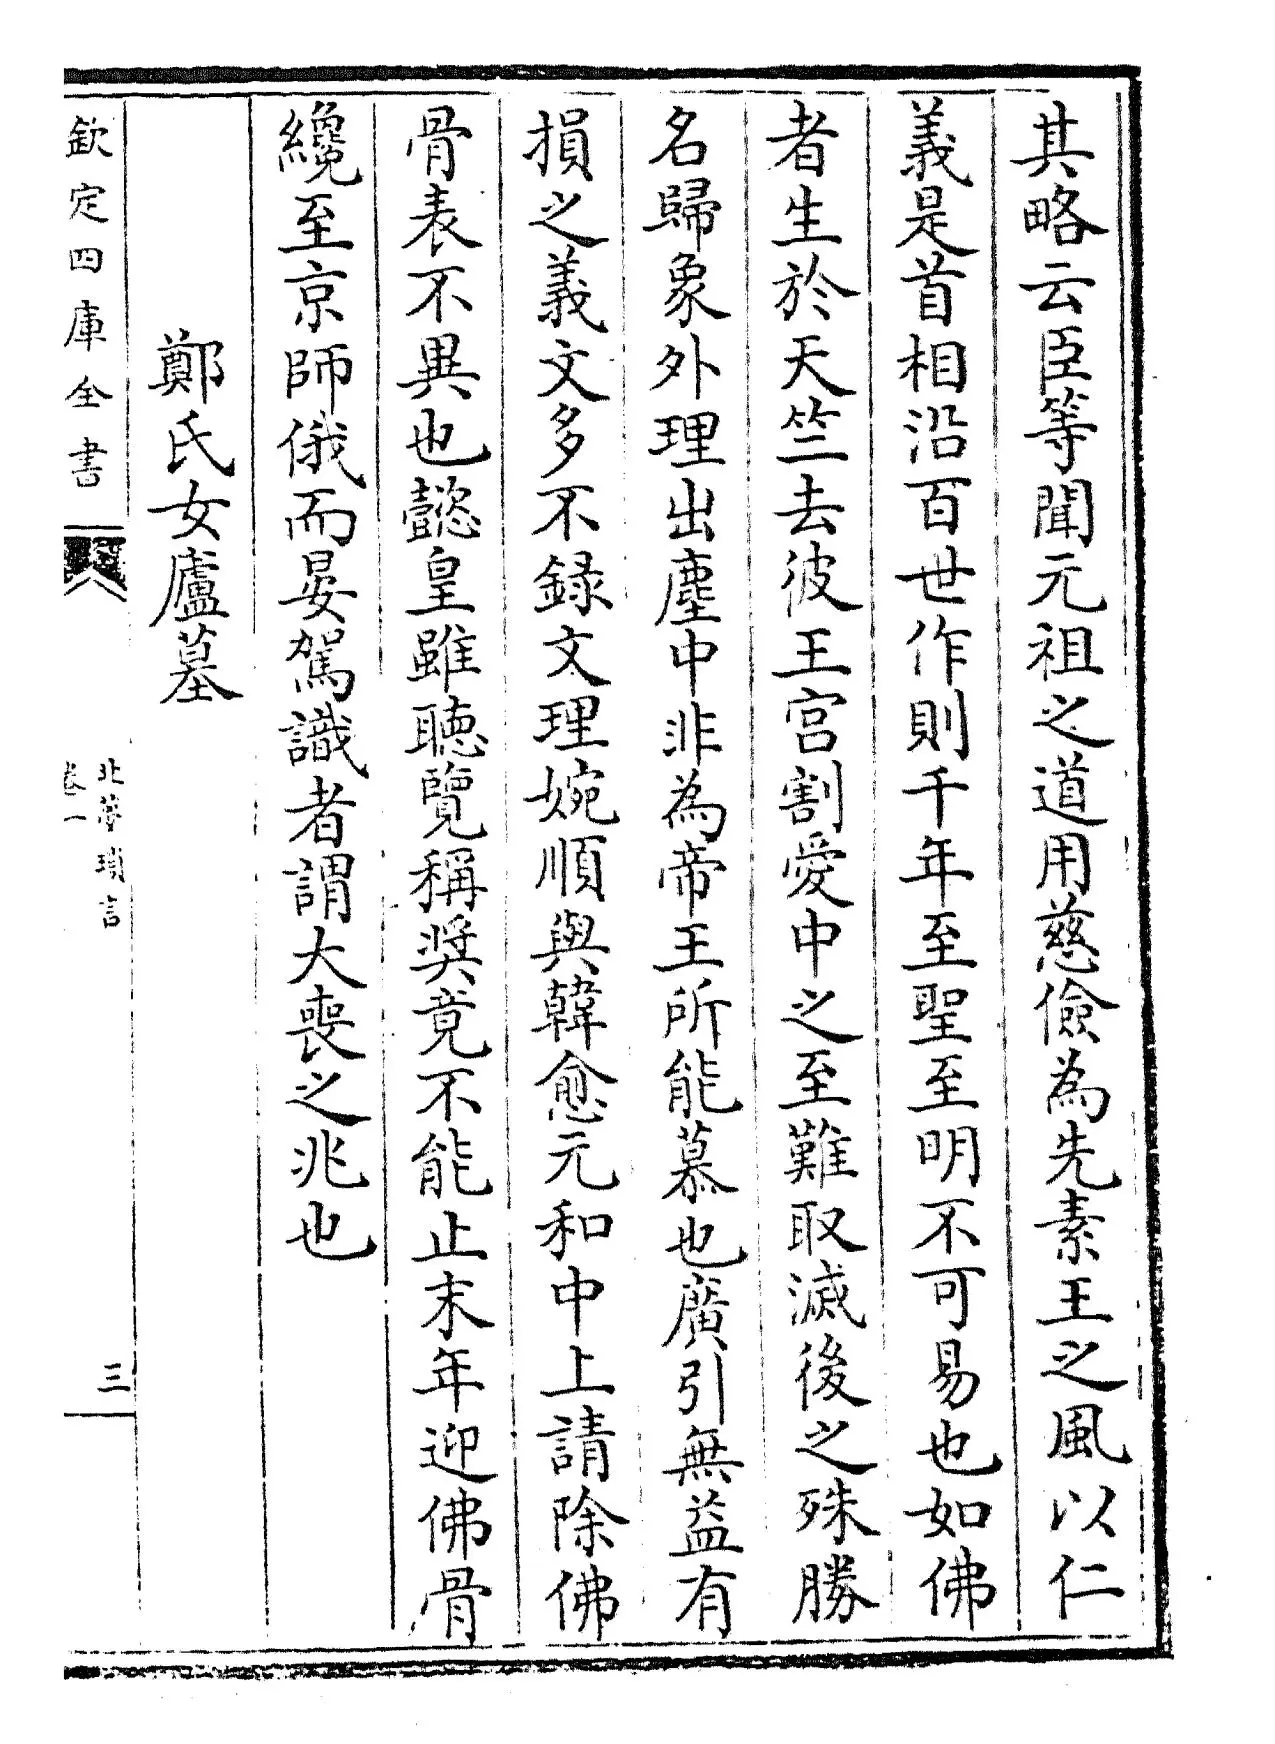 其略云臣等聞元祖之道用慈儉為先素王之風以仁
義是首相沿百世作則千年至聖至明不可易也如佛
者生於天竺去彼王宫割愛中之至難取滅後之殊勝
名歸象外理出塵中非為帝王所能慕也廣引無益有
損之義文多不録文理婉順與韓愈元和中上請除佛
骨表不異也懿皇雖聽覽稱奬竟不能止末年迎佛骨
纔至京師俄而晏駕識者謂大喪之兆也
鄭氏女廬墓
欽定四庫全書
北夢瑣言
卷一
三